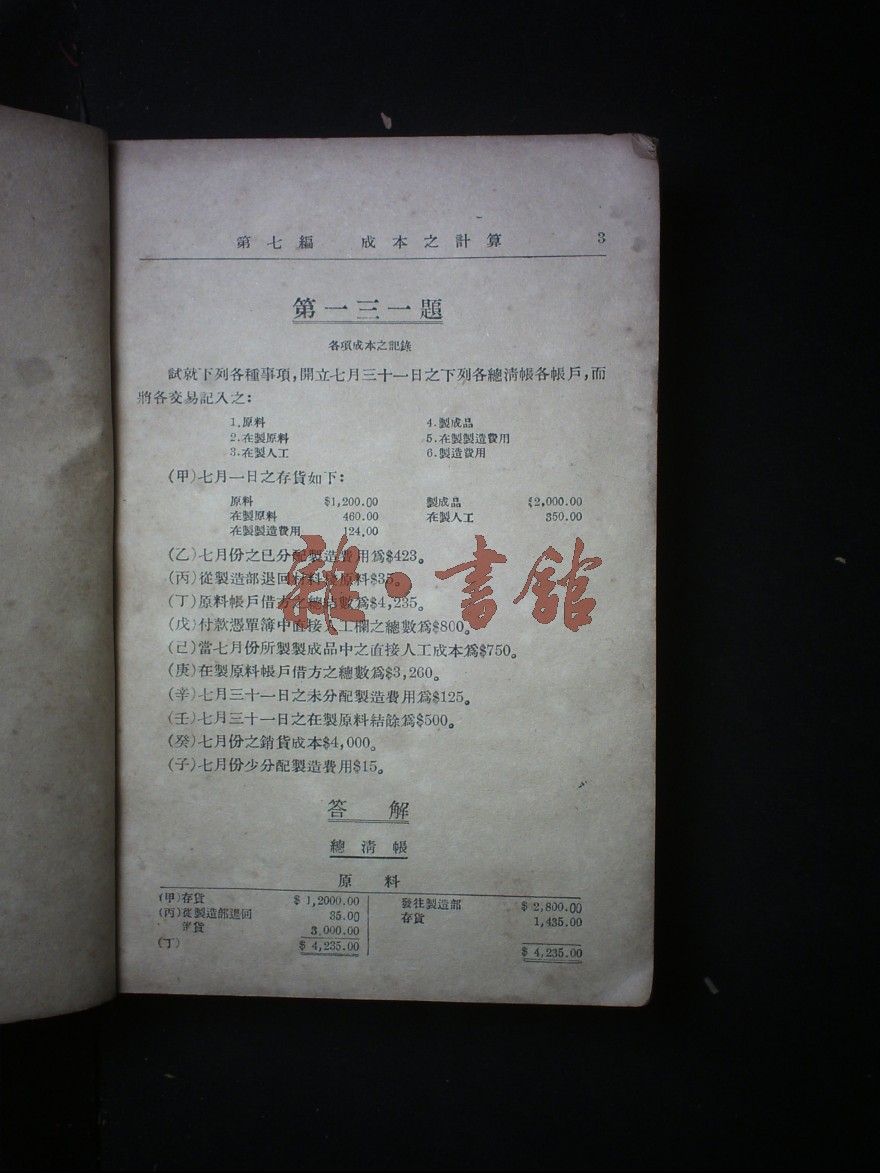 第七編 成本之計算 3
第一三一題
各項成本之記錄
試就下列各種事項,開立七月三十一日之下列各總清帳各帳戶,而
將各交易記入之:
1.原料 4.製成品
2.在製原料 5.在製製造費用
3.在製人工 6.製造費用
(甲)七月一日之存貨如下:
原料 $1,200.00 製成品 $2,000.00
在製原料 460.00 在製人工 350.00
在製製造費用 124.00
(乙)七月份之已分配製造費用爲$423。
(丙)從製造部退回材料原料$35。
(丁)原料帳戶借方之總結數爲$4,235。
(戊)付款憑單簿中直接人工欄之總數爲$800。
(己)當七月份所製製成品中之直接人工成本爲$750。
(庚)在製原料帳戶借方之總數爲$3,260。
(辛)七月三十一日之未分配製造費用爲$125。
(壬)七月三十一日之在製原料結餘爲$500。
(癸)七月份之銷貨成本$4,000。
(子)七月份少分配製造費用$15。
雜·書館
答解
總清帳
原料
(甲)存貨 $ 1,2000.00 發往製造部 $ 2,800.00
(丙)從製造部退回 35.00 存貨 1,435.00
貨 3,000.00
(丁) $ 4,235.00 $ 4,235.00